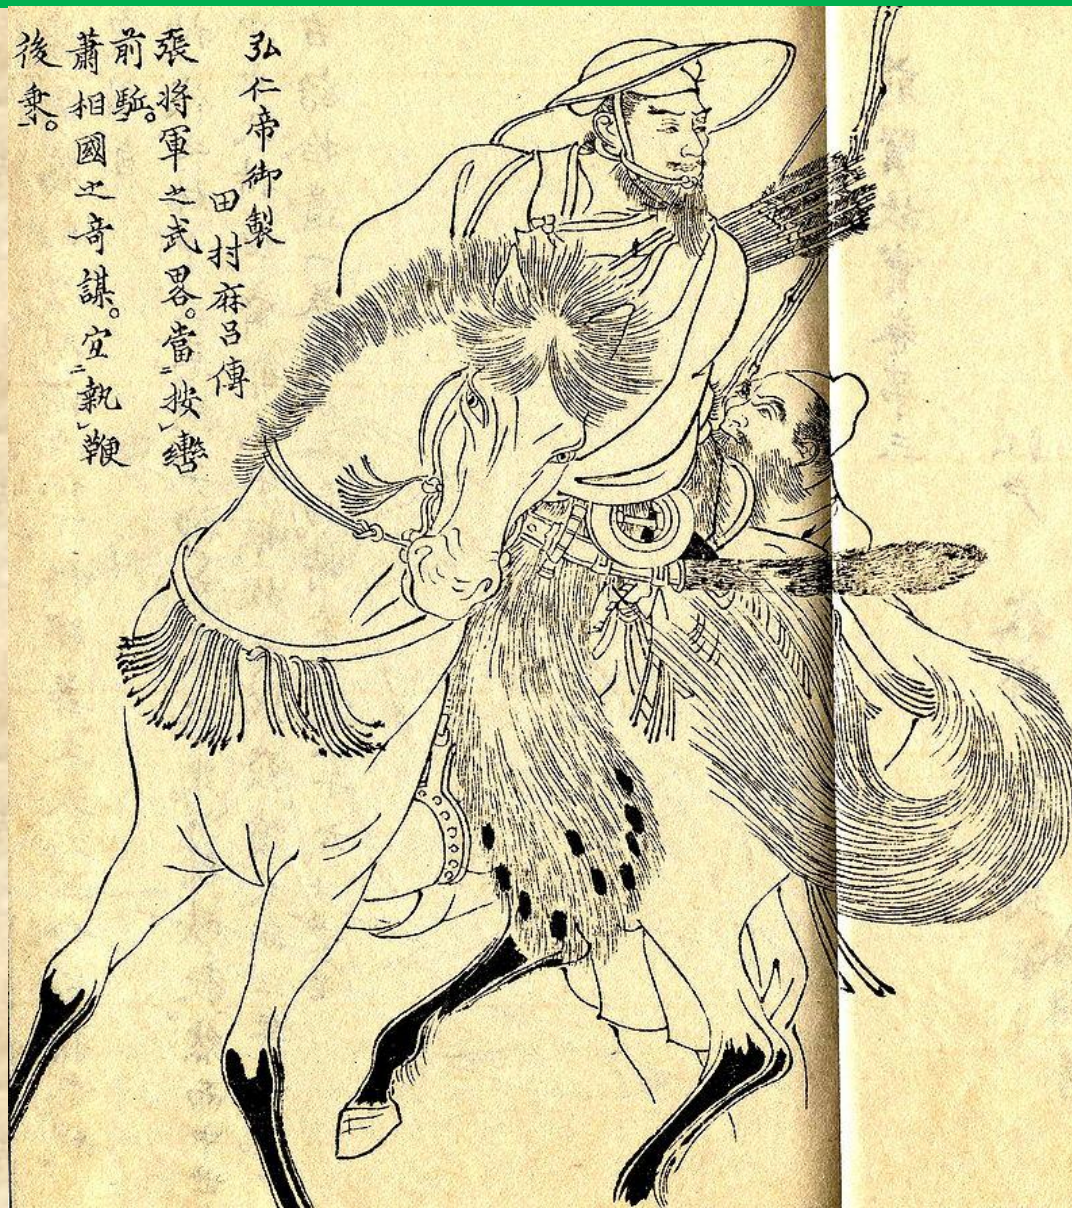 弘仁帝御製
田村麻呂傳
張将軍之武畧。當＝按㆑轡
前駈。
蕭相國之奇謀。宜＝執㆑鞭
後乘。